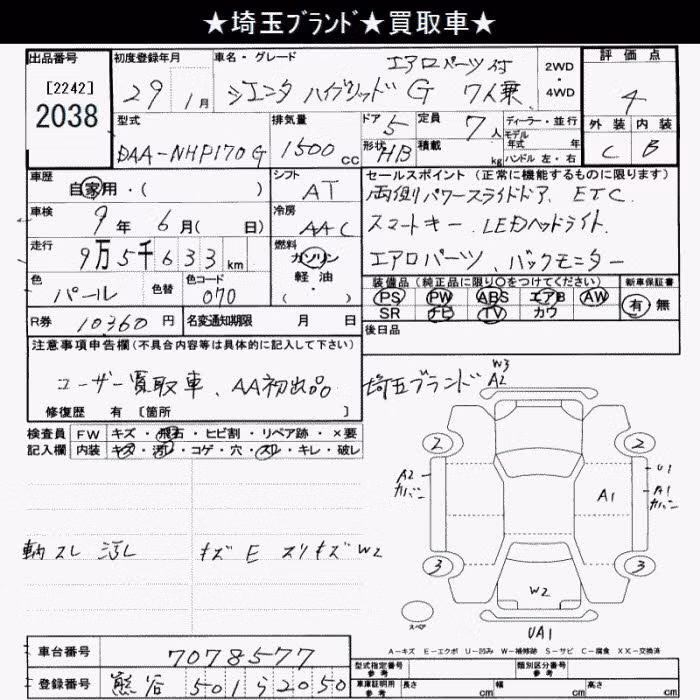 ★埼玉ﾌﾞﾗﾝﾄﾞ★買取車★
出品番号
[2242]
2038
初度登録年月
29年 1月
車名・グレード
エアロパーツ付
シエンタ ハイブリッド G 7人乗
2WD
・
4WD
評価点
4
型式
DAA-NHP170G
排気量
1500cc
ドア 5
形状 HB
定員 7人
積載 kg
ディーラー・並行
モデル
年式 年
ハンドル 左・右
外装 内装
C B
車歴
自家用・( )
シフト
AT
セールスポイント (正常に機能するものに限ります)
両側パワースライドドア. ETC.
スマートキー. LEDヘッドライト.
エアロパーツ、バックモニター
車検
9年 6月( 日)
冷房
AAC
走行
9万5千633km
燃料
ガソリン
軽・油
・( )
色
パール
色替
色コード
070
装備品 (純正品に限り○をつけてください)
PS PW ABS エアB AW
SR ナビ TV カワ
新車保証書
有 無
R券 10,360円
名変通知期限 月 日
後日品
注意事項申告欄 (不具合内容等は具体的に記入して下さい)
ユーザー買取車、AA初出品、埼玉ブランド
修復歴 有 [箇所 ]
検査員
記入欄
FW キズ・飛石・ヒビ割・リペア跡・×要
内装 キズ・汚レ・コゲ・穴・スレ・キレ・破レ
W3
A2
2
2
A2
カバー
U1
A1
カバー
A1
スレ 汚レ
キズ E スリキズ W2
3
3
W2
スペア
UA1
A-キズ E-エクボ U-凹み W-補修跡 S-サビ C-腐食 XX-交換済
車台番号
7078577
登録番号
熊谷 501ら2050
型式指定番号
参考
類別区分番号
参考
車庫証明用
参考
長さ cm
幅 cm
高さ cm